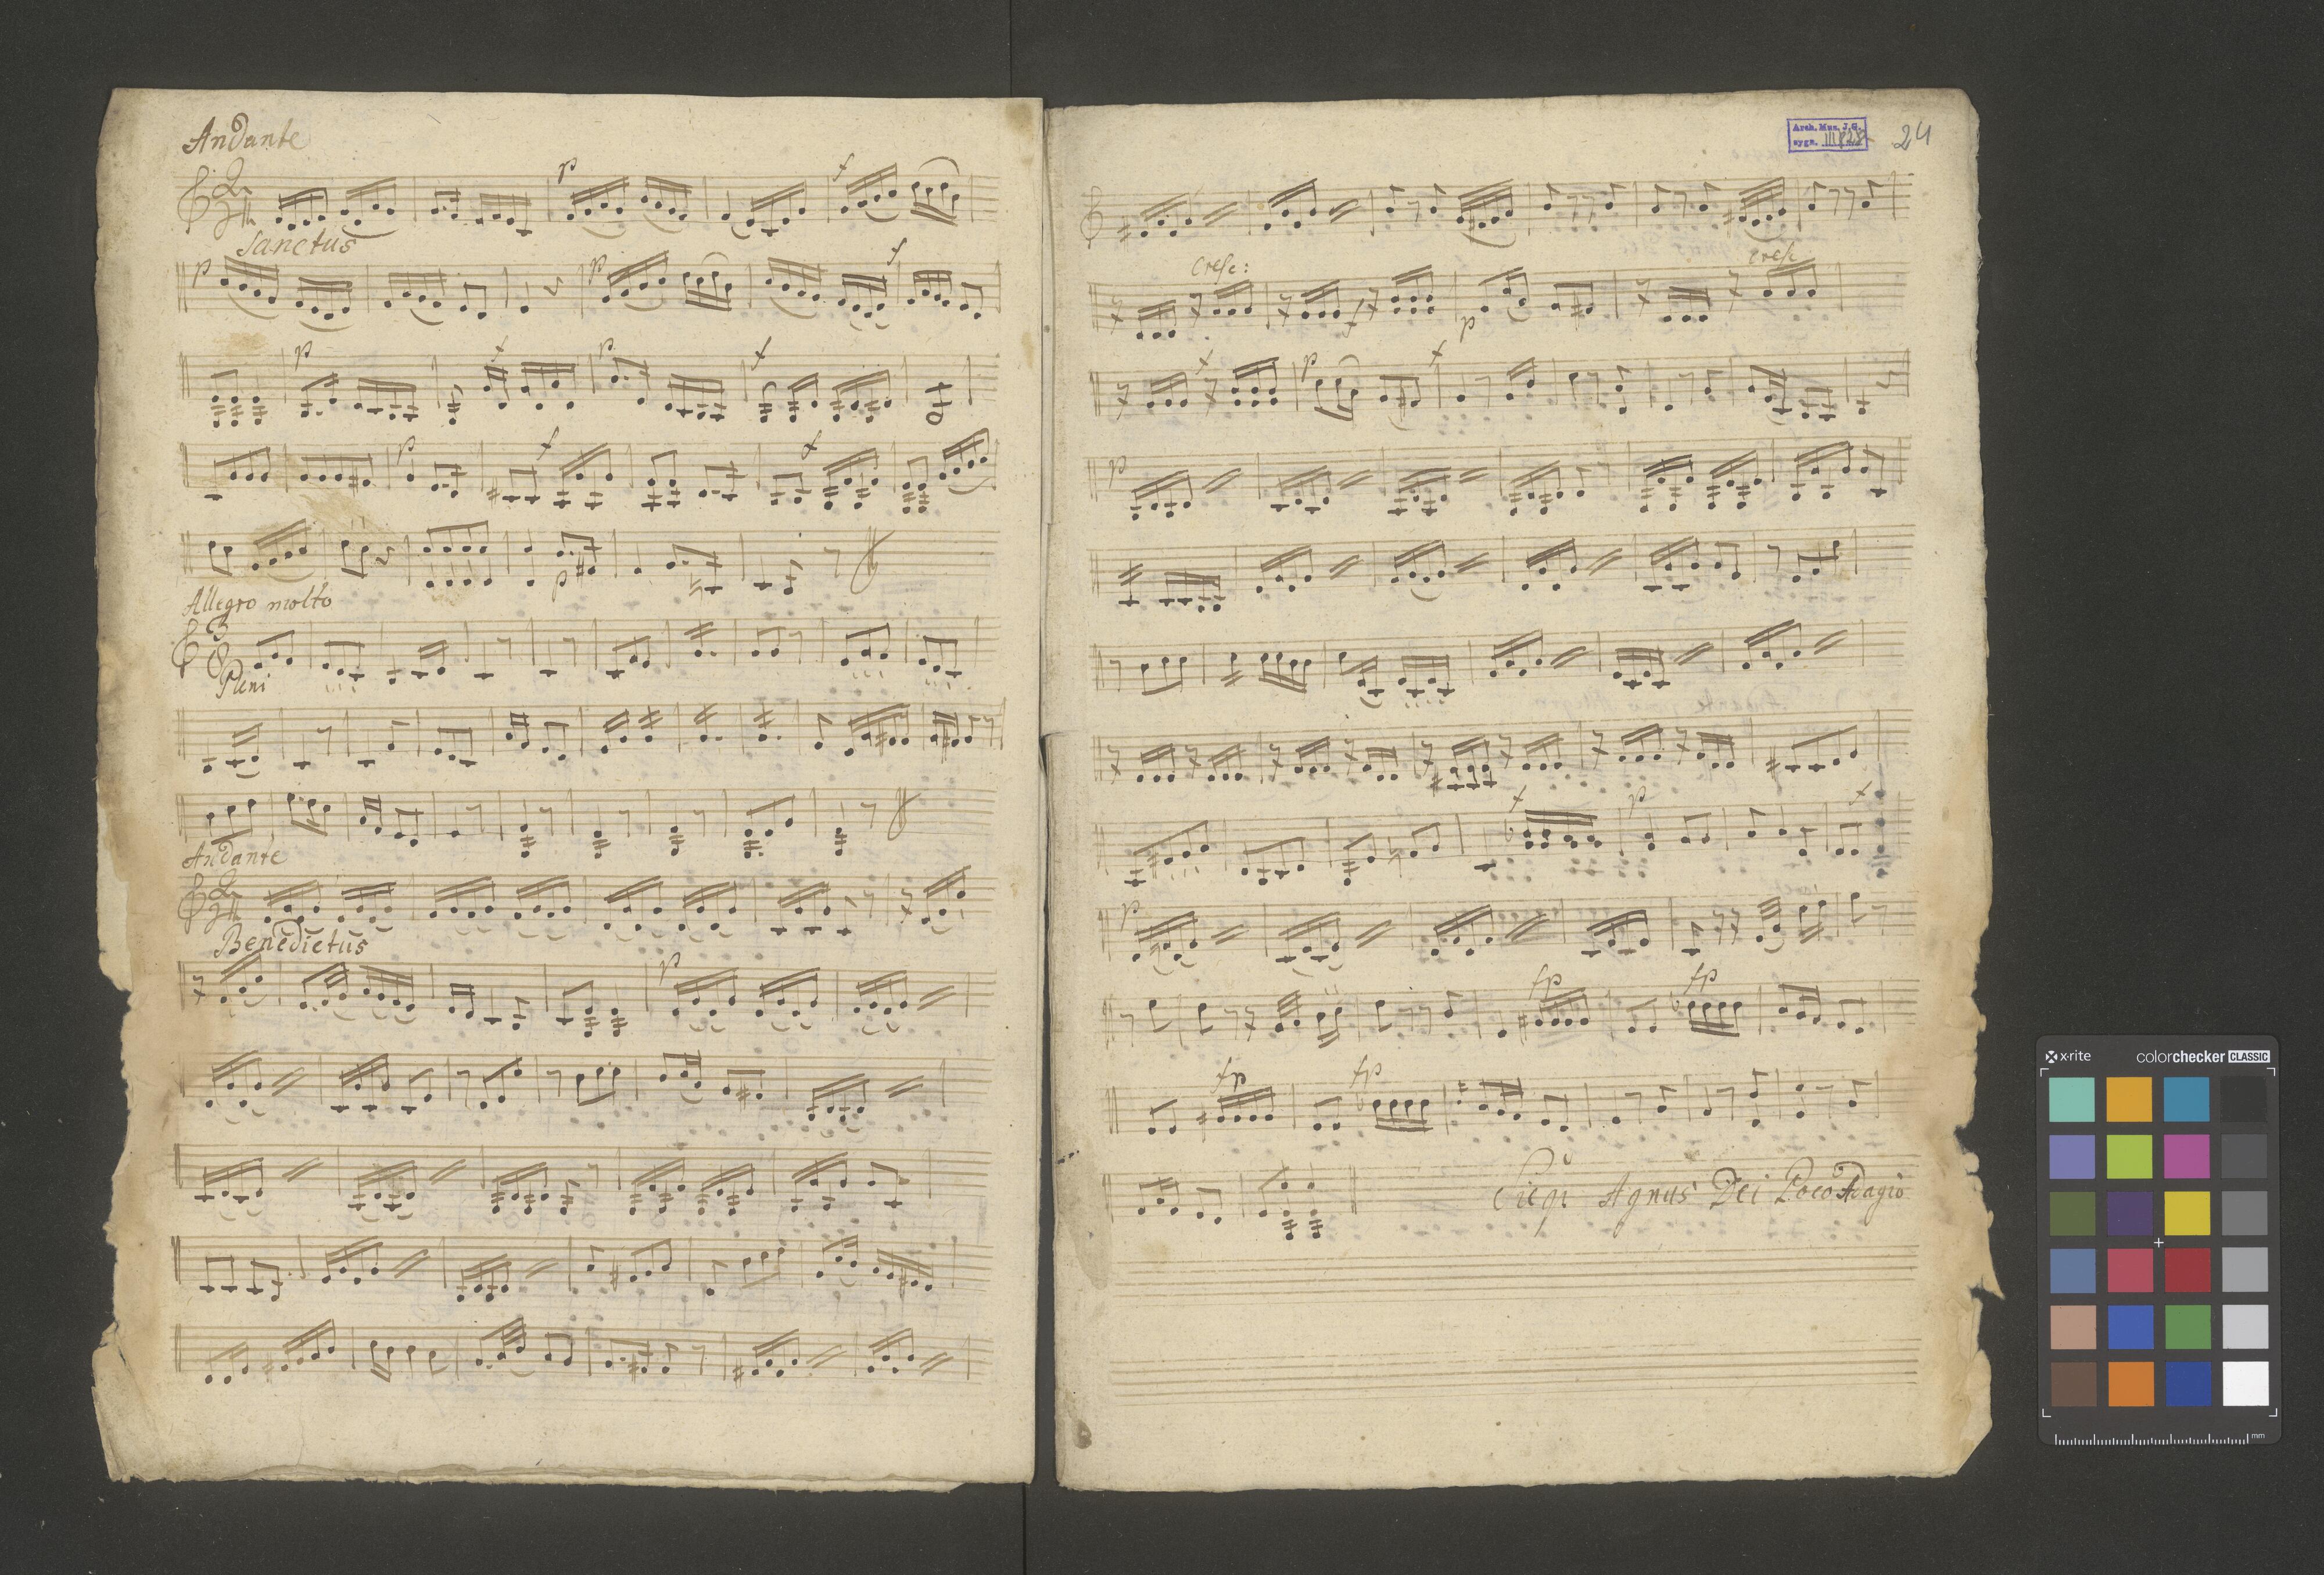 Andante
p f
Sanctus
p p f
p f p f
p f f
p
Allegro molto
3
8
Pleni
Andante
Benedictus
p
Arch. Mus. J.G.
sygn. 24
Cresc: cresc
f p
f p f
p
f p f
p
fp fp
fp fp
Siegue Agnus Dei Poco Adagio
x-rite colorchecker CLASSIC
mm